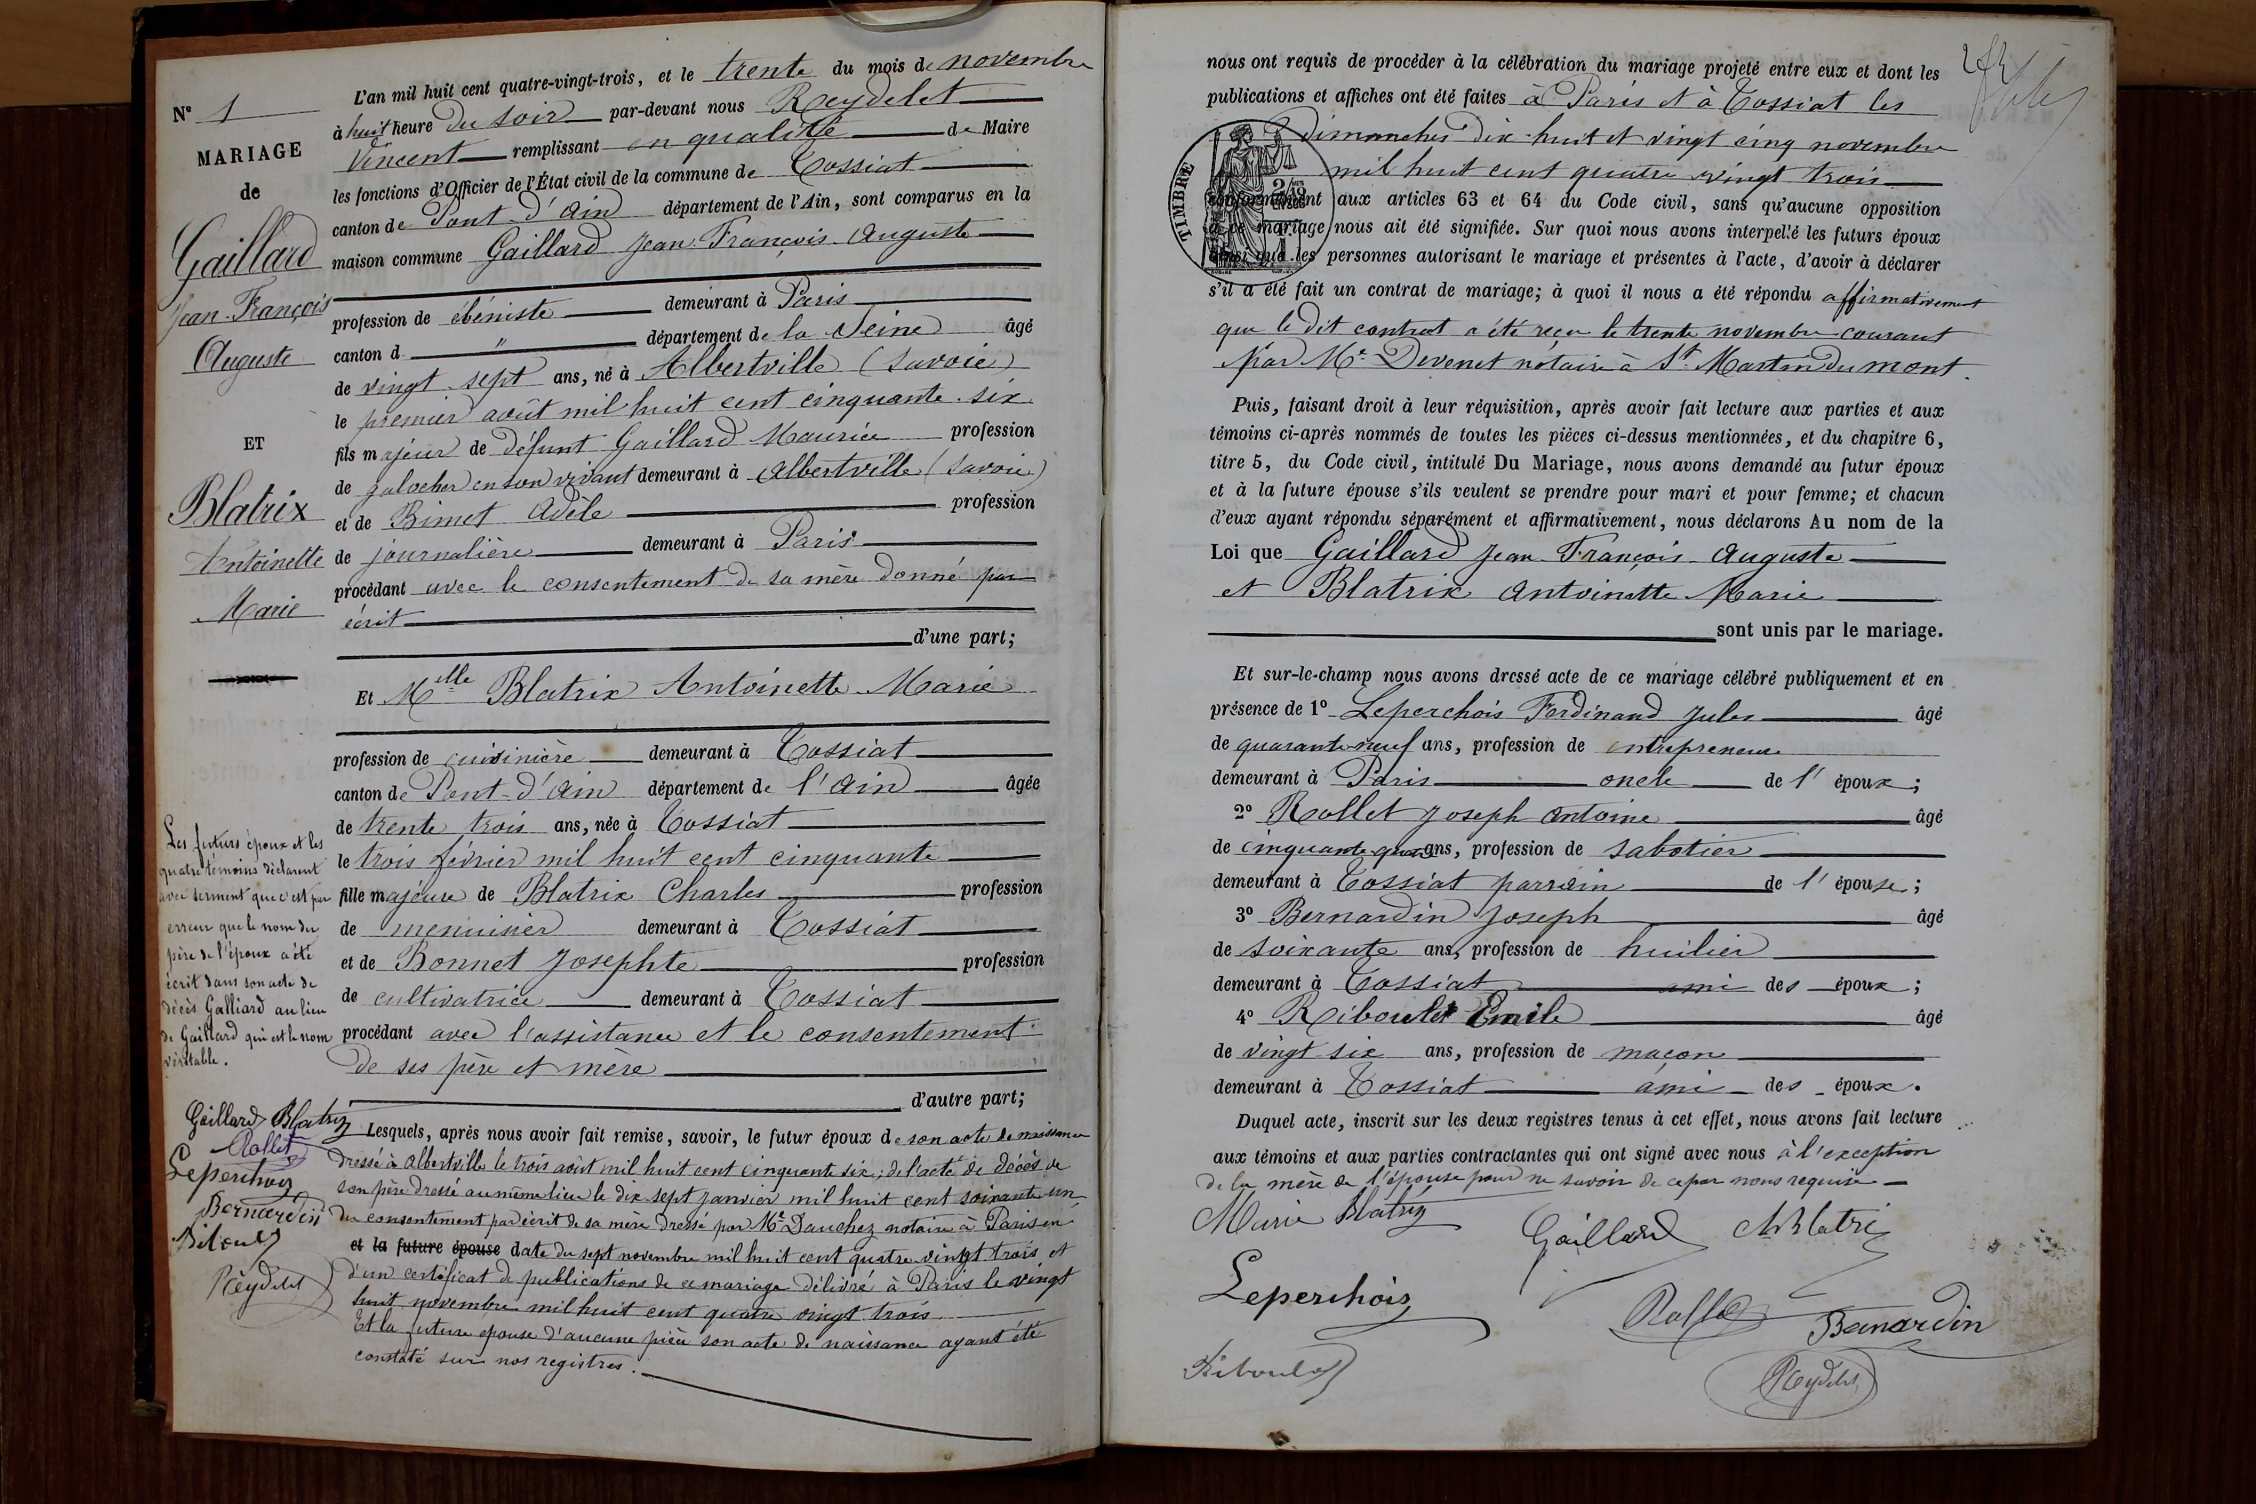 N° 1
MARIAGE
de
Gaillard
Jean-François
Auguste
ET
Blatrix
Antoinette
Marie
Les futurs époux et les
quatre témoins déclarent
avec serment que c'est par
erreur que le nom du
père de l'époux a été
écrit dans son acte de
décès Galliard au lieu
de Gaillard qui est le nom
véritable.
Gaillard Blatrix
Rollet
Leperchois
Bernardin
Riboulet
Reydelet
L'an mil huit cent quatre-vingt-trois, et le trente du mois de novembre
à huit heure du soir par-devant nous Reydelet
Vincent remplissant en qualité de Maire
les fonctions d'Officier de l'État civil de la commune de Tossiat
canton de Pont-d'Ain département de l'Ain, sont comparus en la
maison commune Gaillard Jean-François-Auguste
profession de ébéniste demeurant à Paris
canton d " département de la Seine âgé
de vingt-sept ans, né à Albertville (Savoie)
le premier août mil huit cent cinquante-six
fils majeur de défunt Gaillard Maurice profession
de galocher en son vivant demeurant à Albertville (Savoie)
et de Bimet Adèle profession
de journalière demeurant à Paris
procédant avec le consentement de sa mère donné par
écrit
d'une part;
Et Mlle Blatrix Antoinette Marie
profession de cuisinière demeurant à Tossiat
canton de Pont-d'Ain département de l'Ain âgée
de trente trois ans, née à Tossiat
le trois février mil huit cent cinquante
fille majeure de Blatrix Charles profession
de menuisier demeurant à Tossiat
et de Bonnet Josephte profession
de cultivatrice demeurant à Tossiat
procédant avec l'assistance et le consentement
de ses père et mère
d'autre part;
Lesquels, après nous avoir fait remise, savoir, le futur époux de son acte de naissance
dressé à Albertville le trois août mil huit cent cinquante six; de l'acte de décès de
son père dressé au même lieu le dix-sept janvier mil huit cent soixante-un
du consentement par écrit de sa mère dressé par Me Dauchez notaire à Paris en
et la future épouse date du sept novembre mil huit cent quatre vingt trois et
d'un certificat de publications de ce mariage délivré à Paris le vingt
huit novembre mil huit cent quatre vingt trois
Et la future épouse d'aucune pièce son acte de naissance ayant été
constaté sur nos registres.
nous ont requis de procéder à la célébration du mariage projeté entre eux et dont les
publications et affiches ont été faites à Paris et à Tossiat les
dimanches dix-huit et vingt cinq novembre
mil huit cent quatre vingt trois
TIMBRE
conformément aux articles 63 et 64 du Code civil, sans qu'aucune opposition
à ce mariage nous ait été signifiée. Sur quoi nous avons interpellé les futurs époux
ainsi que les personnes autorisant le mariage et présentes à l'acte, d'avoir à déclarer
s'il a été fait un contrat de mariage; à quoi il nous a été répondu affirmativement
que le dit contrat a été reçu le trente novembre courant
par Me Devenet notaire à St Martin du mont.
Puis, faisant droit à leur réquisition, après avoir fait lecture aux parties et aux
témoins ci-après nommés de toutes les pièces ci-dessus mentionnées, et du chapitre 6,
titre 5, du Code civil, intitulé Du Mariage, nous avons demandé au futur époux
et à la future épouse s'ils veulent se prendre pour mari et pour femme; et chacun
d'eux ayant répondu séparément et affirmativement, nous déclarons Au nom de la
Loi que Gaillard Jean-François-Auguste
et Blatrix Antoinette Marie
sont unis par le mariage.
Et sur-le-champ nous avons dressé acte de ce mariage célébré publiquement et en
présence de 1° Leperchois Ferdinand Jules âgé
de quarante-neuf ans, profession de entrepreneur
demeurant à Paris oncle de l'époux;
2° Rollet Joseph Antoine âgé
de cinquante quatre ans, profession de sabotier
demeurant à Tossiat parrain de l'épouse;
3° Bernardin Joseph âgé
de soixante ans, profession de huilier
demeurant à Tossiat ami des époux;
4° Riboulet Emile âgé
de vingt six ans, profession de maçon
demeurant à Tossiat ami des époux.
Duquel acte, inscrit sur les deux registres tenus à cet effet, nous avons fait lecture
aux témoins et aux parties contractantes qui ont signé avec nous à l'exception
de la mère de l'épouse pour ne savoir de ce par nous requise
Marie Blatrix Gaillard Blatrix
Leperchois Rollet Bernardin
Riboulet Reydelet